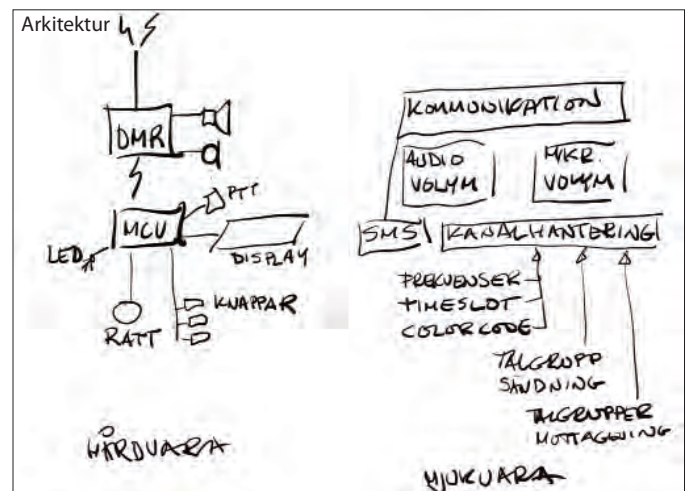 Arkitektur
DMR
MCU
PTT
LED
DISPLAY
RATT
KNAPPAR
HÅRDVARA
KOMMUNIKATION
AUDIO
VOLYM
MIKR.
VOLYM
SMS
KANALHANTERING
FREKVENSER
TIMESLOT
COLORCODE
TALGRUPP
SÄNDNING
TALGRUPPER
MOTTAGNING
MJUKVARA